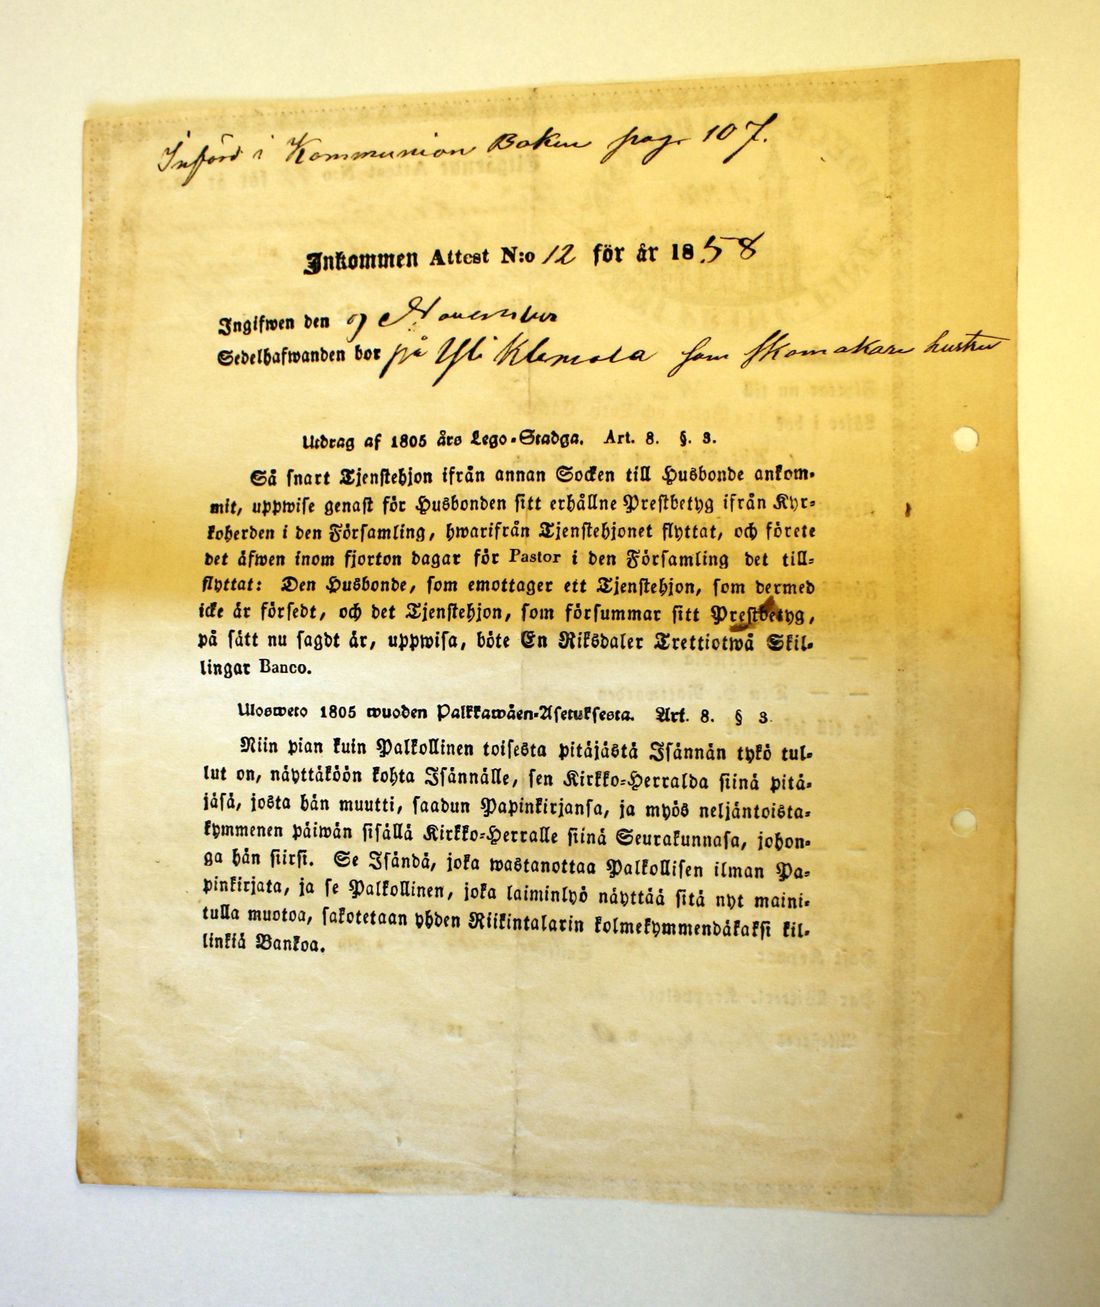 Införd i Kommunion Boken pag. 107.
Inkommen Attest N:o 12 för år 1858
Ingifwen den 9 November
Sedelhafwanden bor på Yli Klemola som skomakare hustru
Utdrag af 1805 års Lego-Stadga. Art. 8. §. 3.
Så snart Tjenstehjon ifrån annan Socken till Husbonde ankom-
mit, uppwise genast för Husbonden sitt erhållne Prestbetyg ifrån Kyr-
koherden i den Församling, hwarifrån Tjenstehjonet flyttat, och förete
det äfwen inom fjorton dagar för Pastor i den Församling det till-
flyttat: Den Husbonde, som emottager ett Tjenstehjon, som dermed
icke är försedt, och det Tjenstehjon, som försummar sitt Prestbetyg,
på sätt nu sagdt är, uppwisa, böte En Riksdaler Trettiotwå Skil-
lingar Banco.
Ulosweto 1805 wuoden Palkkawäen-Asetuksesta. Art. 8. § 3.
Niin pian kuin Palkollinen toisesta pitäjästä Isännän tykö tul-
lut on, näyttäköön kohta Isännälle, sen Kirkko-Herralda siinä pitä-
jäsä, josta hän muutti, saadun Papinkirjansa, ja myös neljäntoista-
kymmenen päiwän sisällä Kirkko-Herralle siinä Seurakunnasa, johon-
ga hän siirsi. Se Isändä, joka wastanottaa Palkollisen ilman Pa-
pinkirjata, ja se Palkollinen, joka laiminlyö näyttää sitä nyt maini-
tulla muotoa, sakotetaan yhden Riikintalarin kolmekymmendäkaksi kil-
linkiä Bankoa.